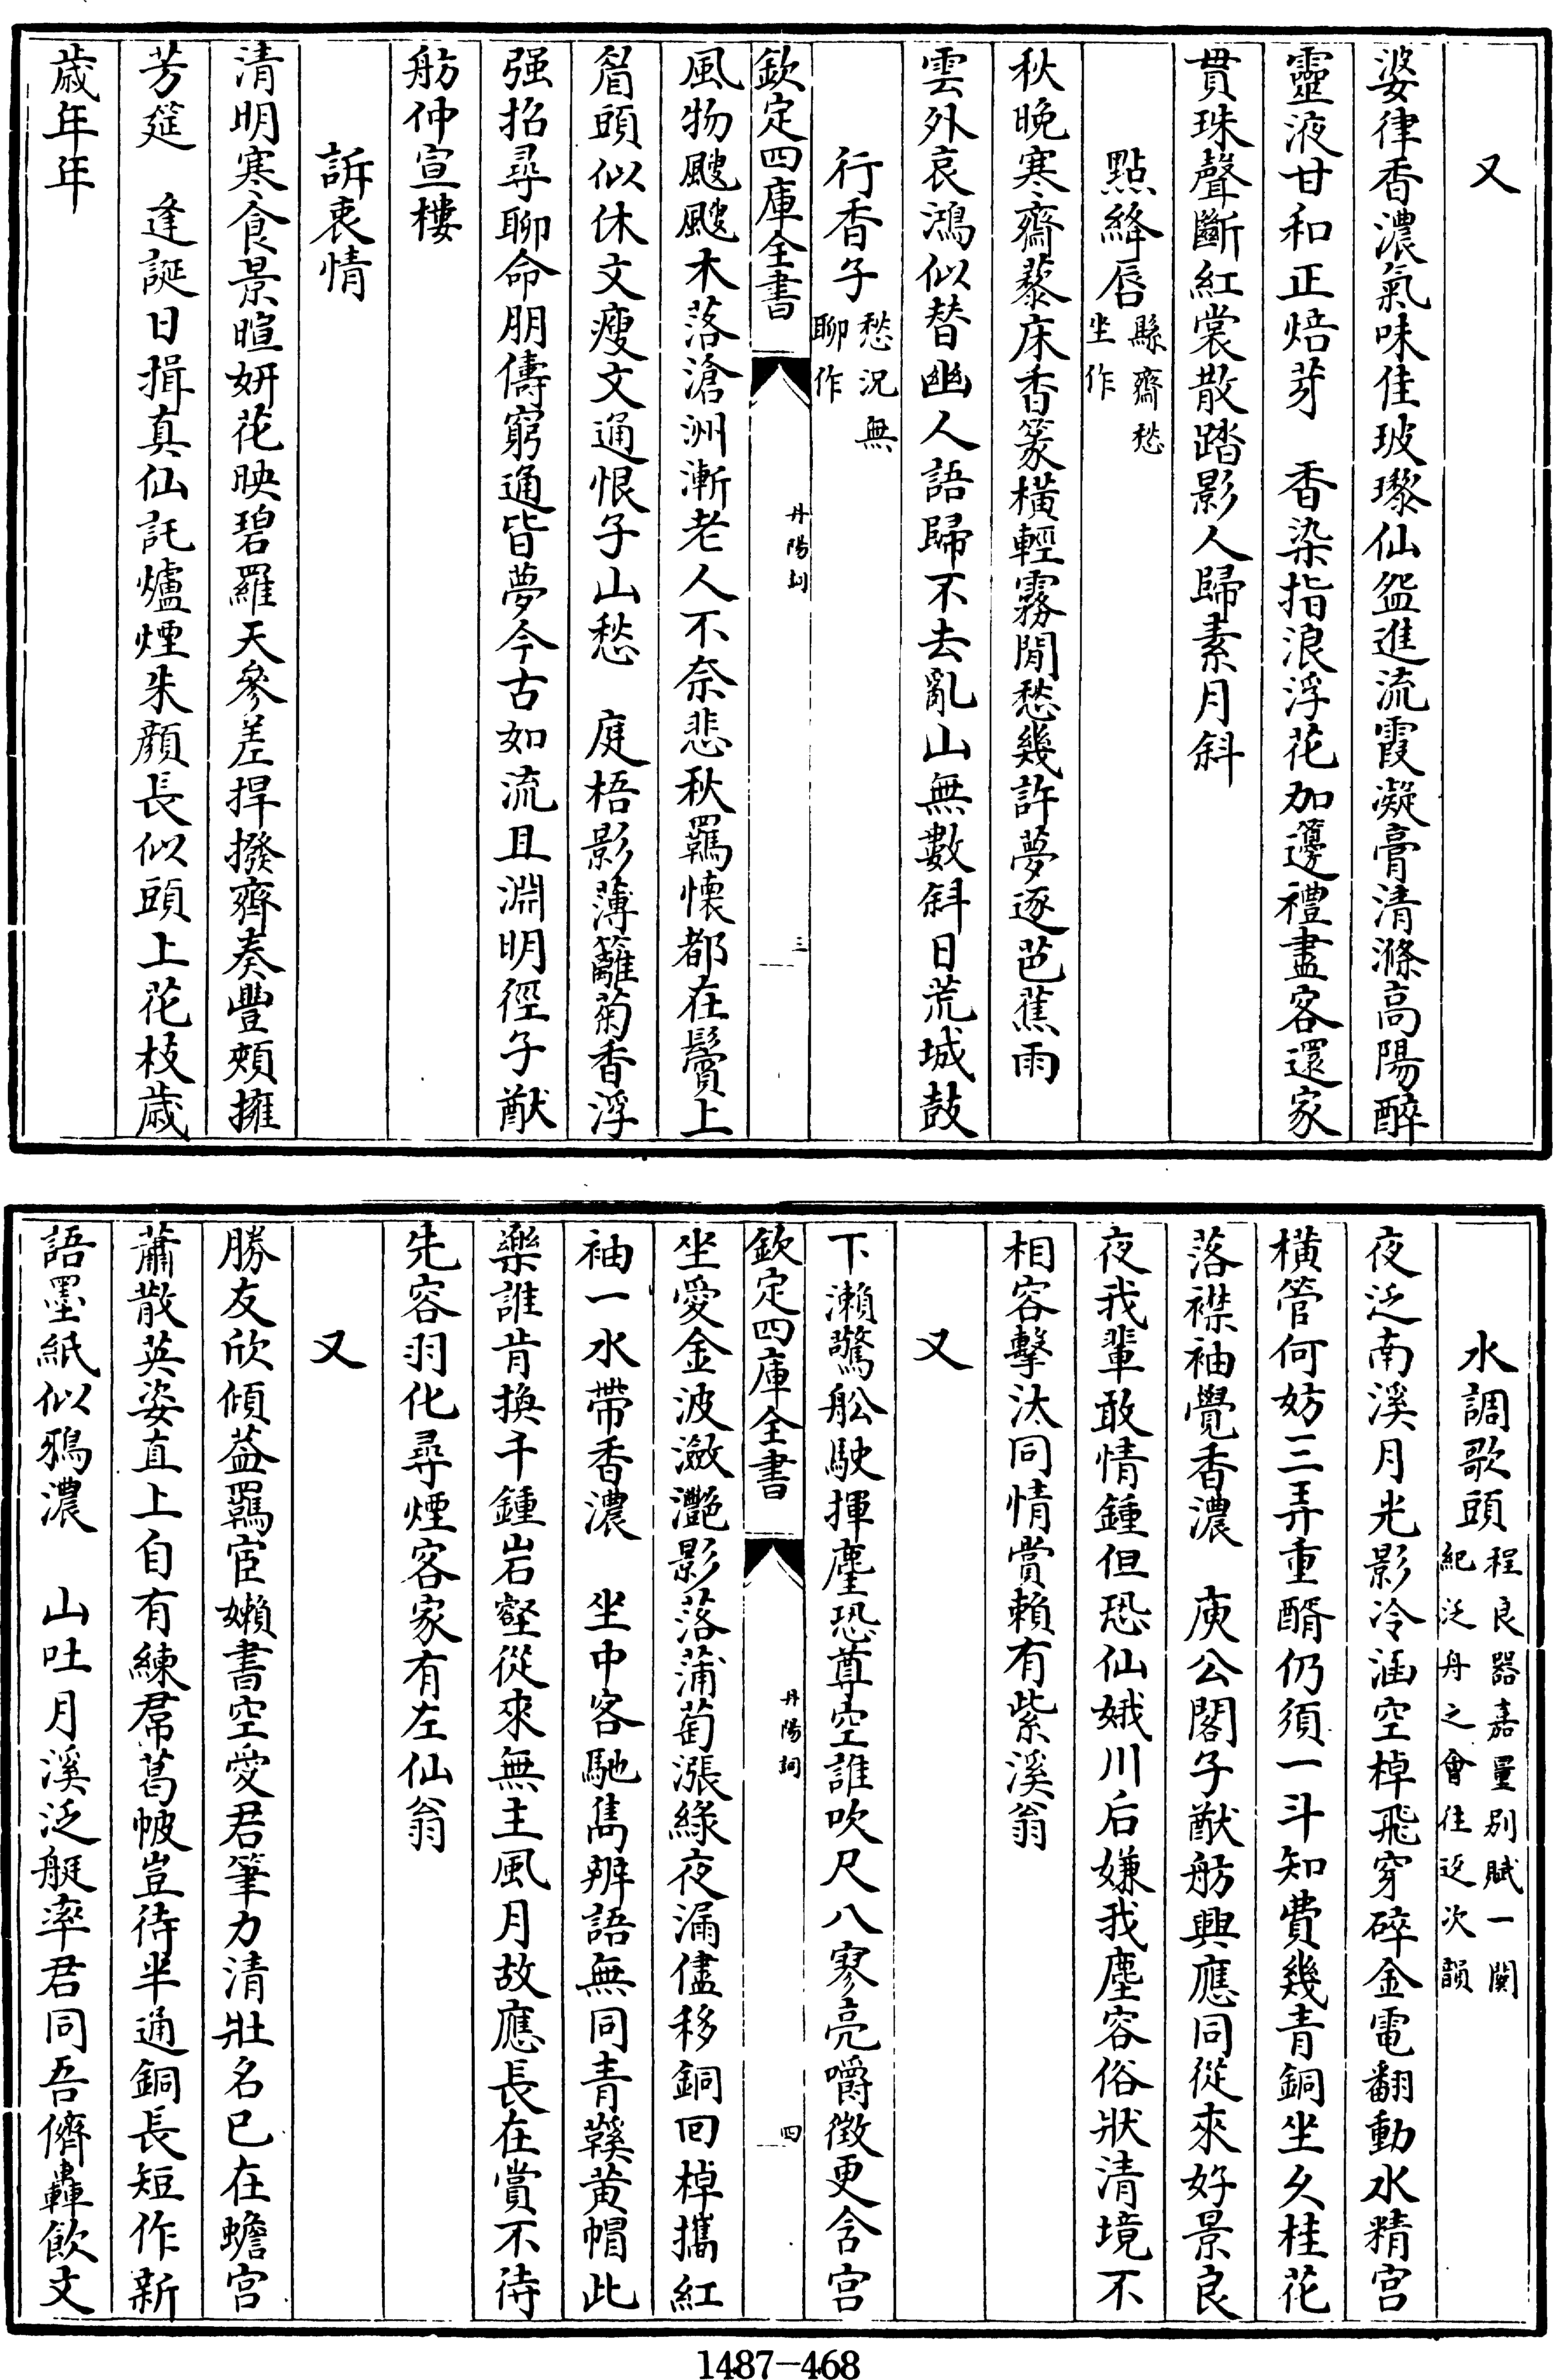 又
婆律香濃氣味佳玻瓈仙盌進流霞凝膏清滌髙陽醉
靈液甘和正焙芽　香染指浪浮花加籩禮盡客還家
貫珠聲斷紅裳散踏影人歸素月斜
點絳唇縣齋愁坐作
秋晚寒齋藜床香篆橫輕霧閒愁幾許夢逐芭蕉雨
雲外哀鴻似替幽人語歸不去亂山無數斜日荒城鼓
行香子愁况無聊作
欽定四庫全書　丹陽詞　三
風物颼颼木落滄洲漸老人不奈悲秋羈懐都在鬢上
眉頭似休文瘦文通恨子山愁　庭梧影薄籬菊香浮
强招尋聊命朋儔窮通皆夢今古如流且淵明徑子猷
舫仲宣樓
訴衷情
清明寒食景暄妍花映碧羅天參差捍撥齊奏豐頰擁
芳筵　逢誕日揖真仙託爐煙朱顔長似頭上花枝歲
歲年年
水調歌頭程良器嘉量别賦一闋紀泛舟之會往返次韻
夜泛南溪月光影冷涵空棹飛穿碎金電翻動水精宮
橫管何妨三弄重醑仍須一斗知費幾青銅坐久桂花
落襟袖覺香濃　庾公閣子猷舫興應同從來好景良
夜我輩敢情鍾但恐仙娥川后嫌我塵容俗狀清境不
相容擊汰同情賞賴有紫溪翁
又
下瀨驚船駛揮麈恐尊空誰吹尺八寥亮嚼徵更含宮
欽定四庫全書　丹陽詞　四
坐愛金波瀲灩影落蒲萄漲綠夜漏儘移銅回棹攜紅
袖一水帶香濃　坐中客馳雋辨語無同青鞵黃帽此
樂誰肯換千鍾岩壑從來無主風月故應長在賞不待
先容羽化尋煙客家有左仙翁
又
勝友欣傾蓋羈宦嬾書空愛君筆力清壯名已在蟾宮
蕭散英姿直上自有練帬葛帔豈待半通銅長短作新
語墨紙似鴉濃　山吐月溪泛艇率君同吾儕轟飲文
1487—468